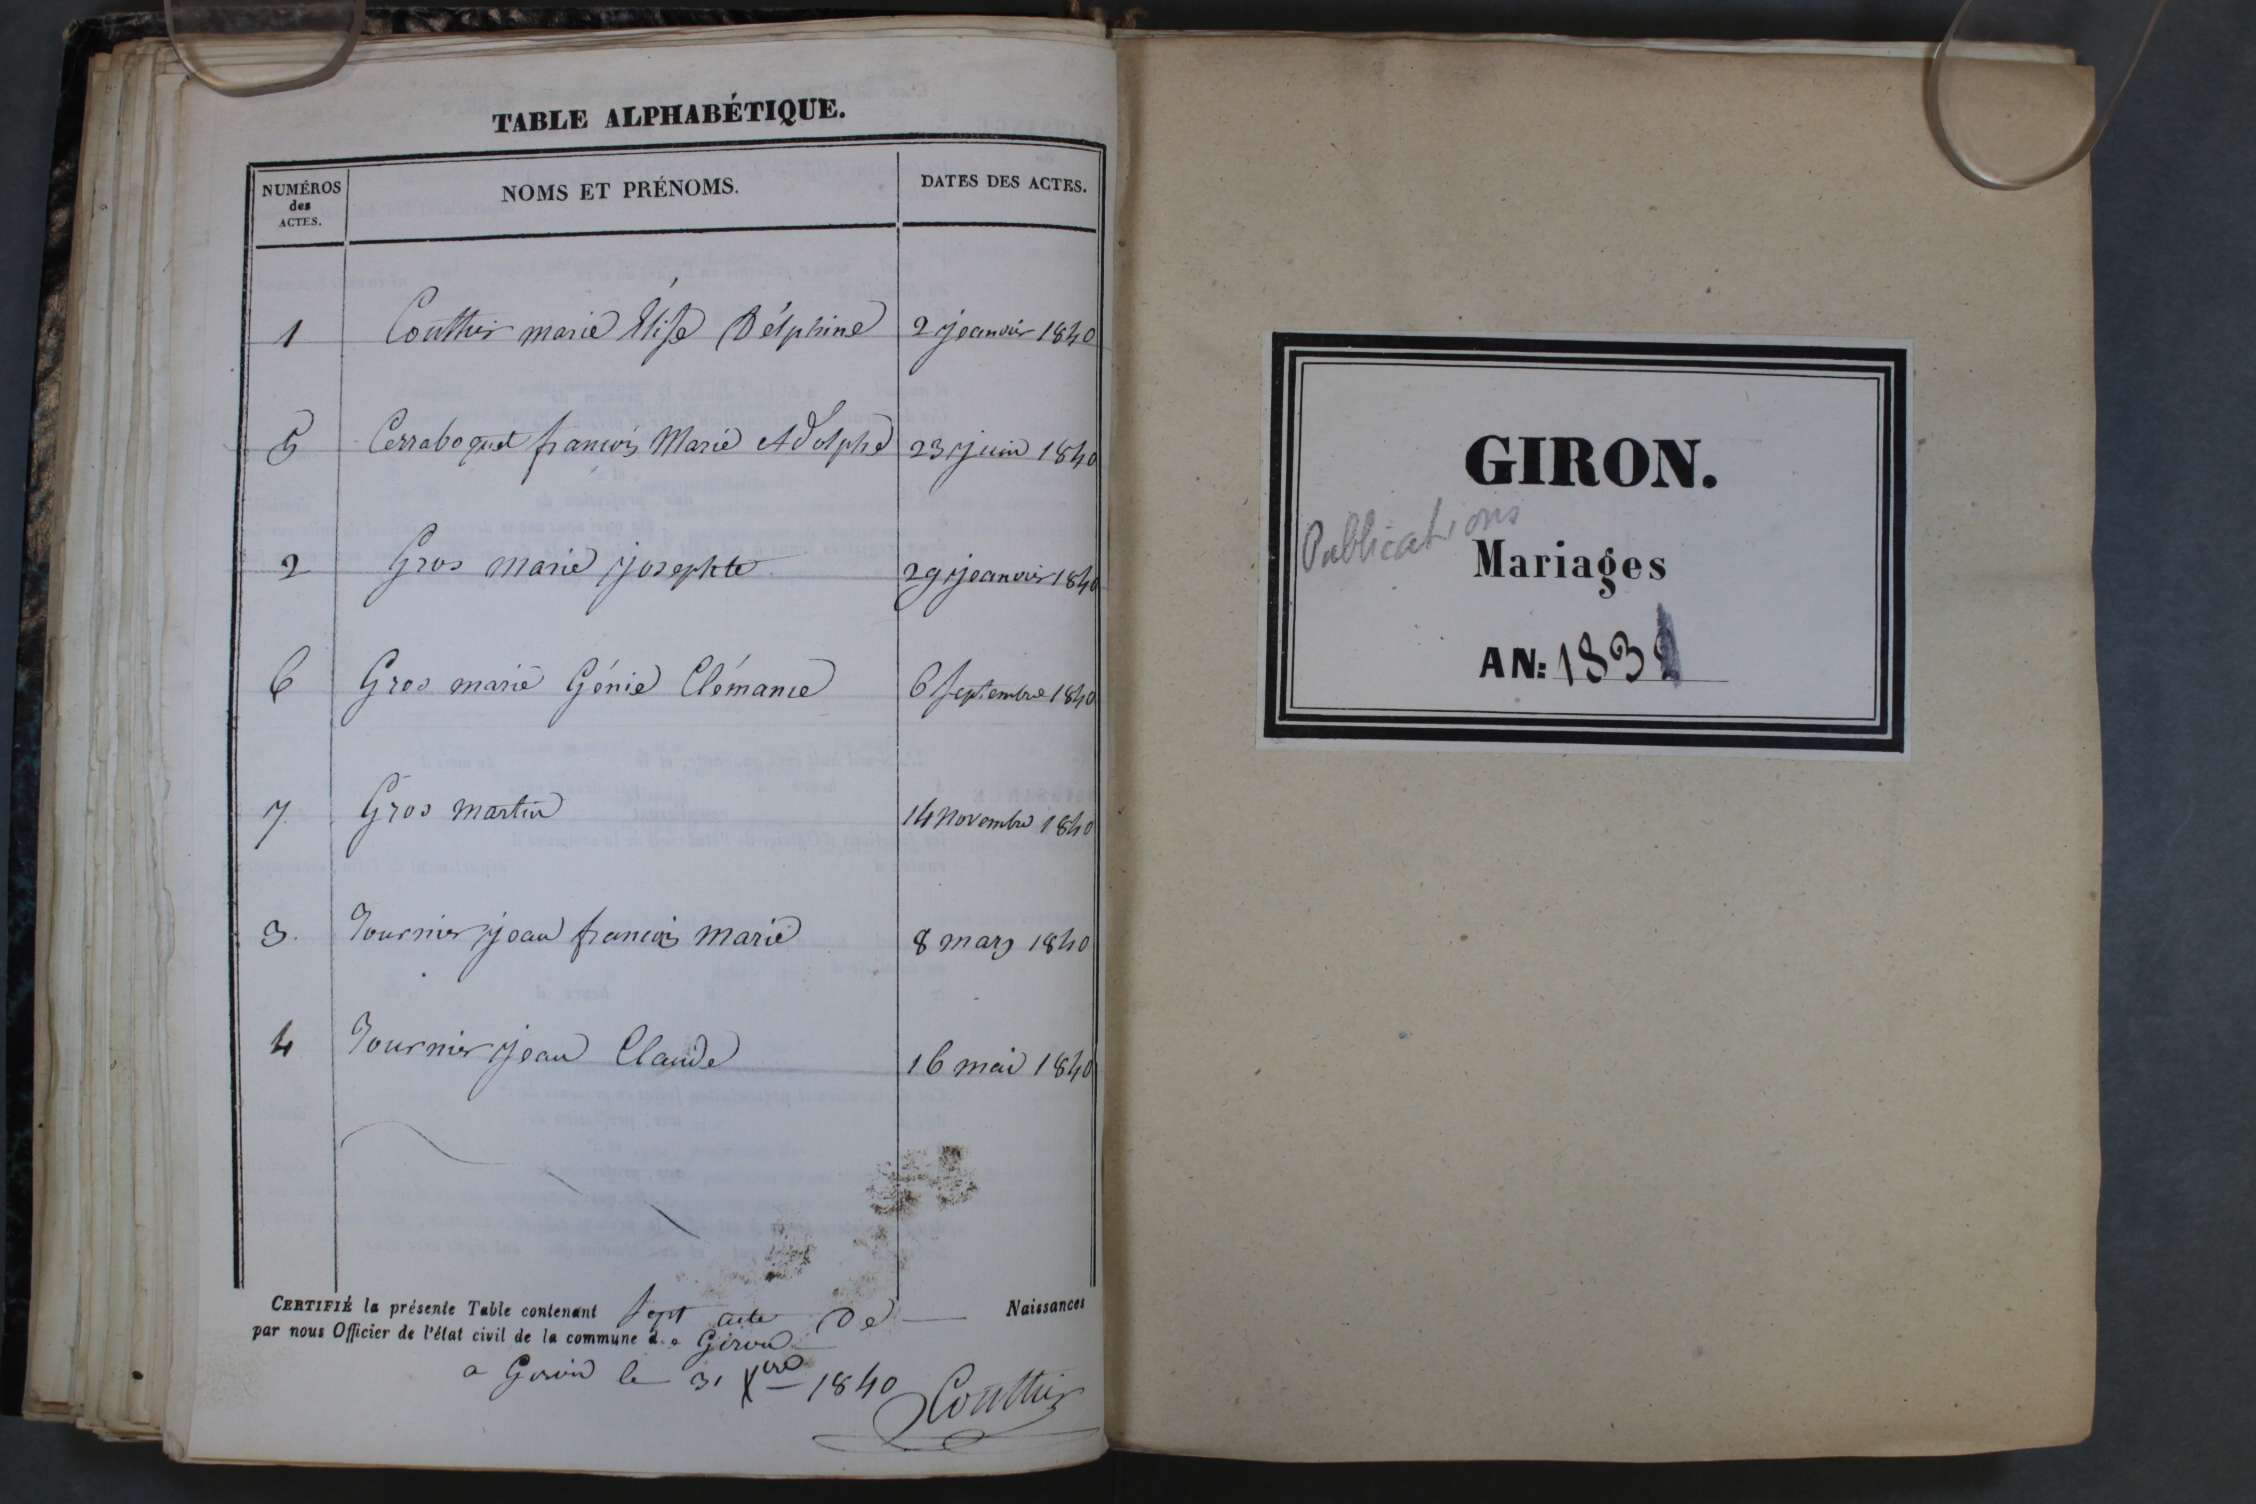 TABLE ALPHABÉTIQUE.
NUMÉROS des ACTES. NOMS ET PRÉNOMS. DATES DES ACTES.
1 Coutthier marie Élise Délphine 2 jeanvier 1840
5 Cerraboquet francois Marie Adolphe 23 juin 1840
2 Gros marie josephte 29 jeanvier 1840
6 Gros marie Génie Clémance 6 Septembre 1840
7 Gros martin 14 Novembre 1840
3. Tournier jean francois marie 8 mars 1840
4 Tournier jean Claude 16 mai 1840
CERTIFIÉ la présente Table contenant Sept acte De Naissances
par nous Officier de l'état civil de la commune de Giron
a Giron le 31 Xbre 1840
Coutthier
GIRON.
Publications
Mariages
AN: 183